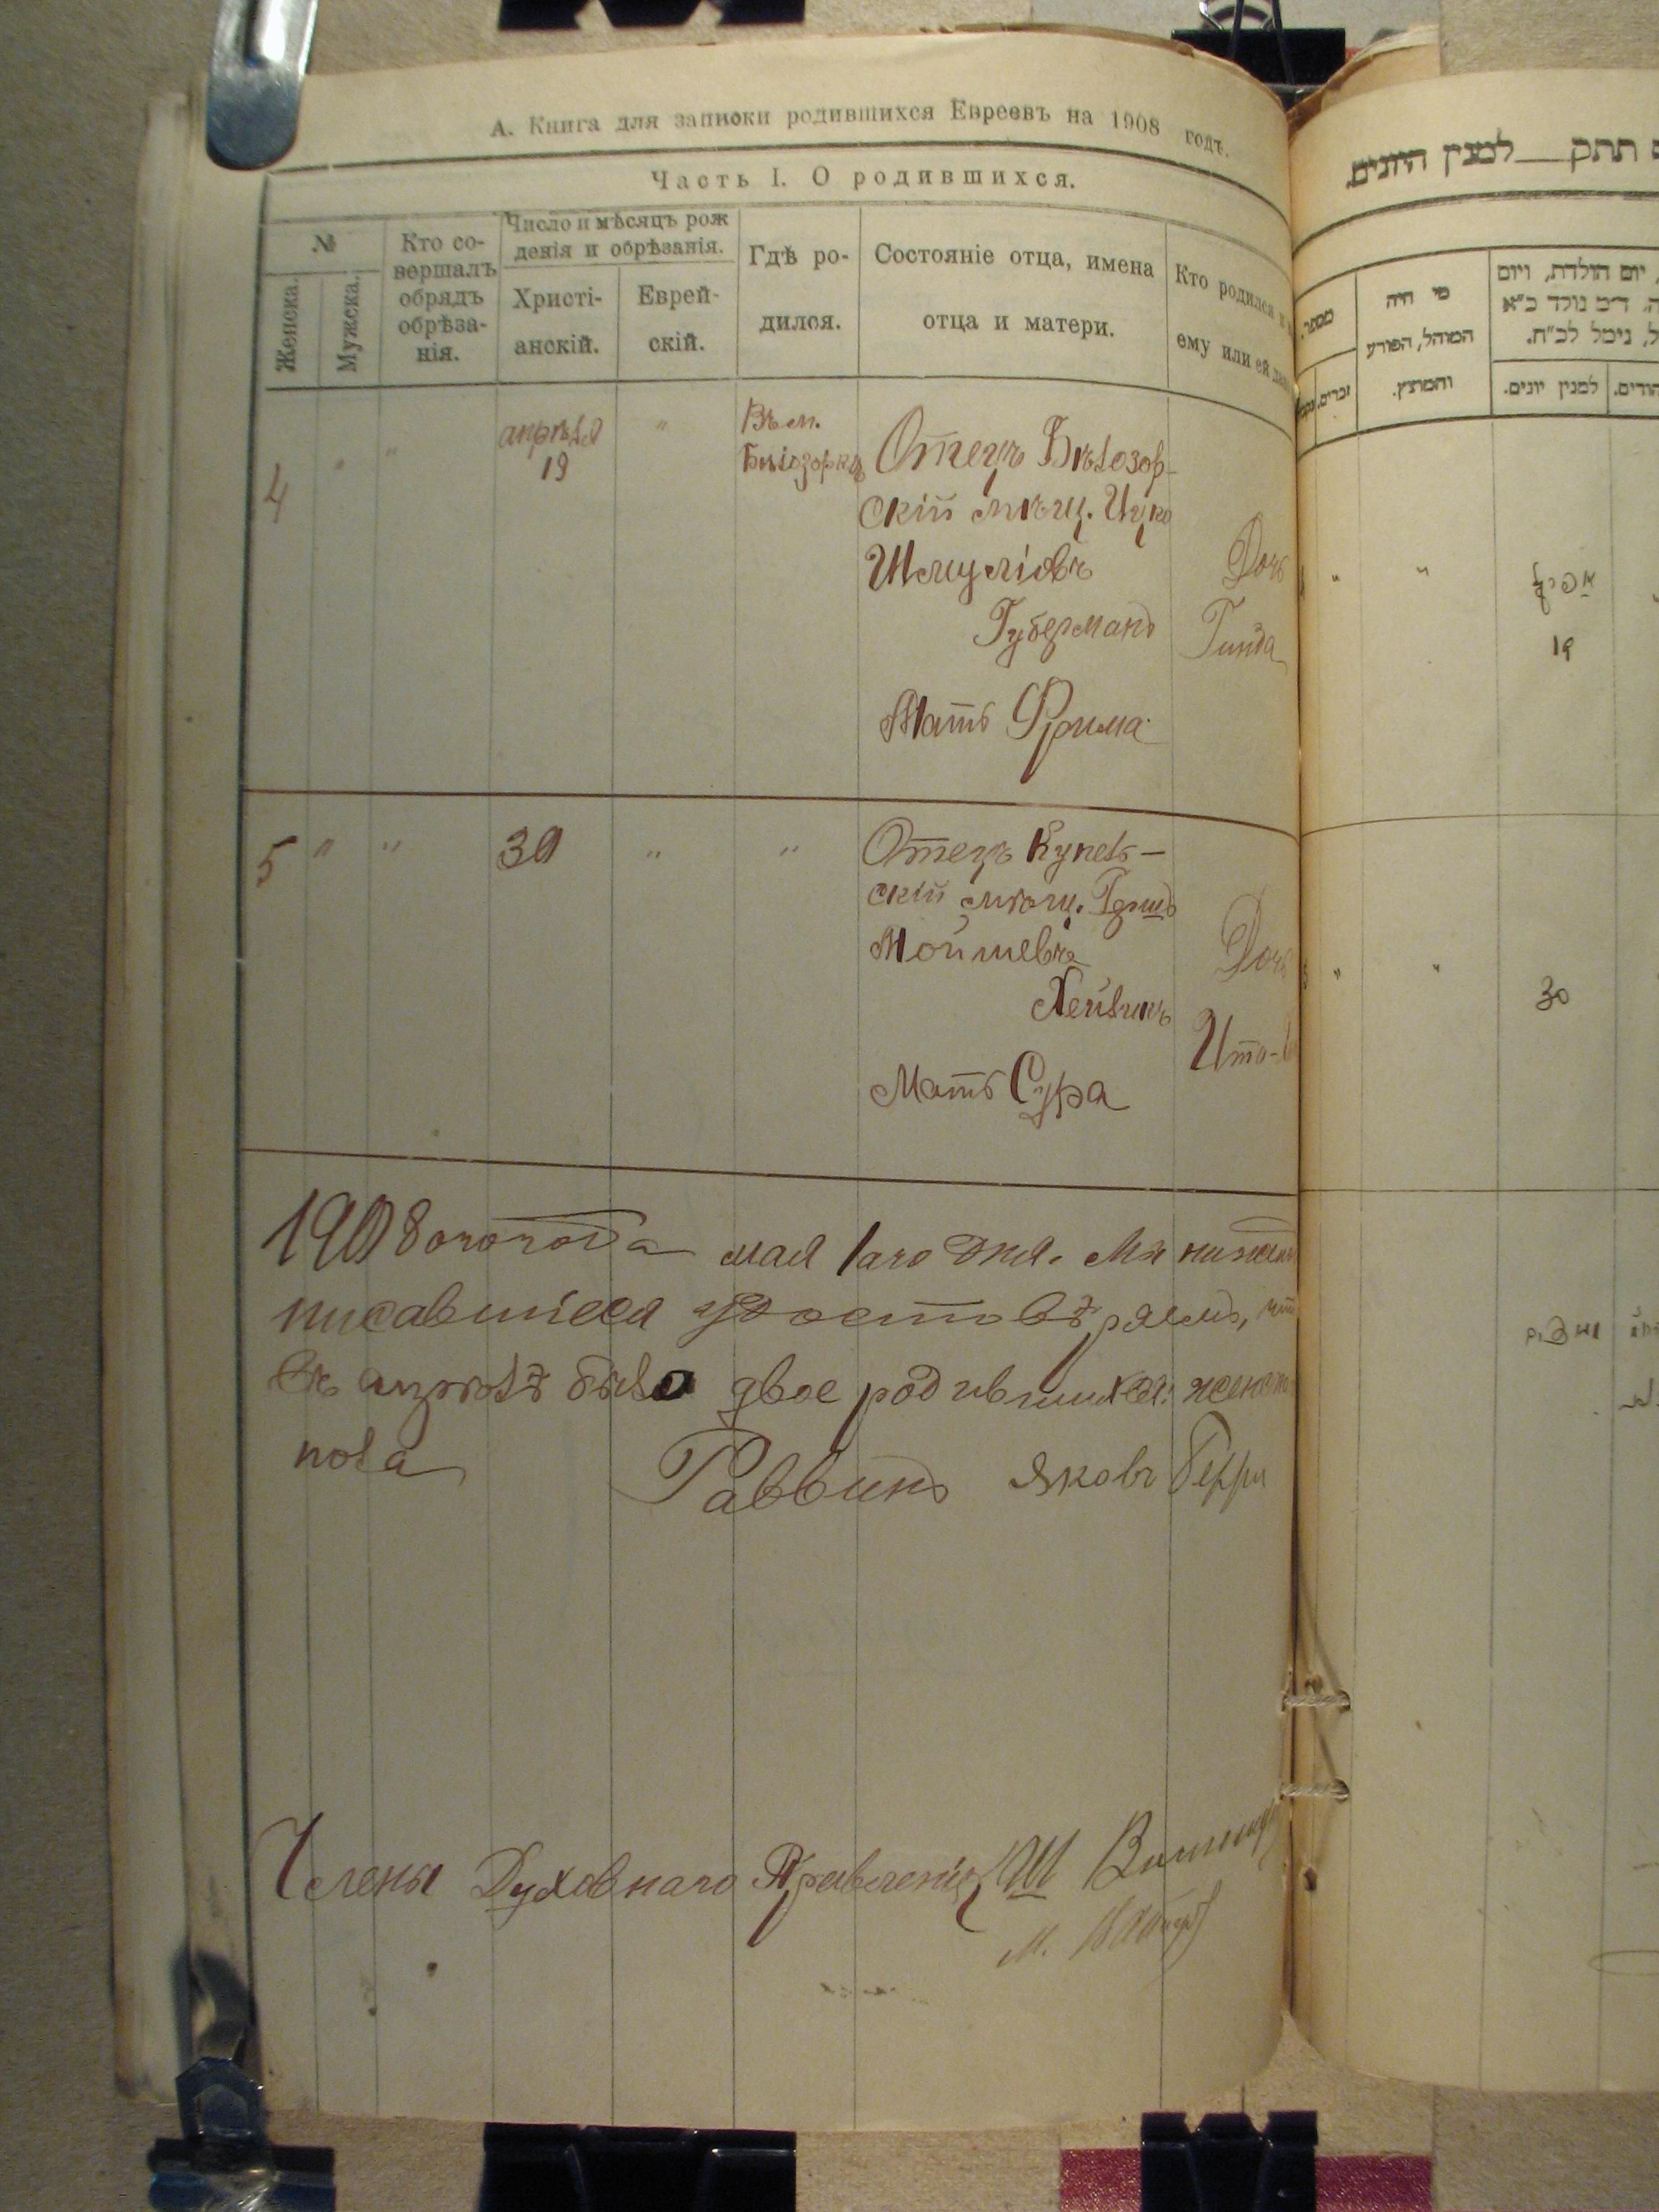 А. Книга для записки родившихся Евреевъ на 1908 годъ.
Часть I. О родившихся.
№
Женска.
Мужска.
Кто со-
вершалъ
обрядъ
обрѣза-
нія.
Число и мѣсяцъ рож
денія и обрѣзанія.
Христі-
анскій.
Еврей-
скій.
Гдѣ ро-
дился.
Состояніе отца, имена
отца и матери.
Кто родился и
ему или ей
4 " " апрѣля
19
"
Въ м.
Бѣлозоркѣ
Отецъ Бѣлозор-
скій мѣщ. Ицко
Шмуліовъ
Губерманъ
Мать Фрима
Дочь
Гинда
5 " " 30 " "
Отецъ Купель-
скій мѣщ. Гершъ
Мойшевъ
Хейвикъ
Мать Сура
Дочь
Ито-
1908 ого года мая 1 аго дня. Мы нижепод
писавшіеся удостовѣряемъ, что
въ апрѣлѣ было двое родившихся: женска
пола
Раввинъ Яковъ
Члены Духовнаго Правленія Ш
М.
תתק למנין היונים.
מספר.
זכרים.
מי היה
המוהל, הפורע
והמוצץ.
יום הולדת, ויום
ה. ד״מ נולד כ״א
ל, נימל לכ״ח.
למנין יונים.
" " אפריל
19
" " 30